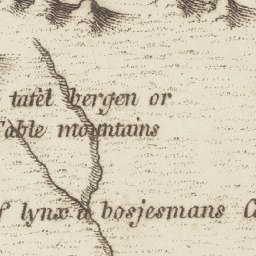 tafel bergen or
Table mountains
lynx a bosjesmans